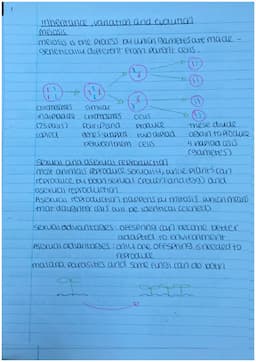 Inheritance, variation and evolution
meiosis
meiosis is the process by which gametes are made -
genetically different from parent cells.
chromosomes similar
chromosomes cells these divide
(23 pairs) pair up and produce again to produce
copied two 4 haploid cells
between them cells (gametes)
Sexual and asexual reproduction
most animals reproduce sexually, while plants can
reproduce by both sexual (pollination) and
asexual reproduction.
Asexual reproduction happens by mitosis, which means
that daughter cells will be identical (clones).
Sexual advantages: offspring can become better
adapted to environment
Asexual advantages: only one offspring is needed to
reproduce
malaria parasites and some fungi can do both